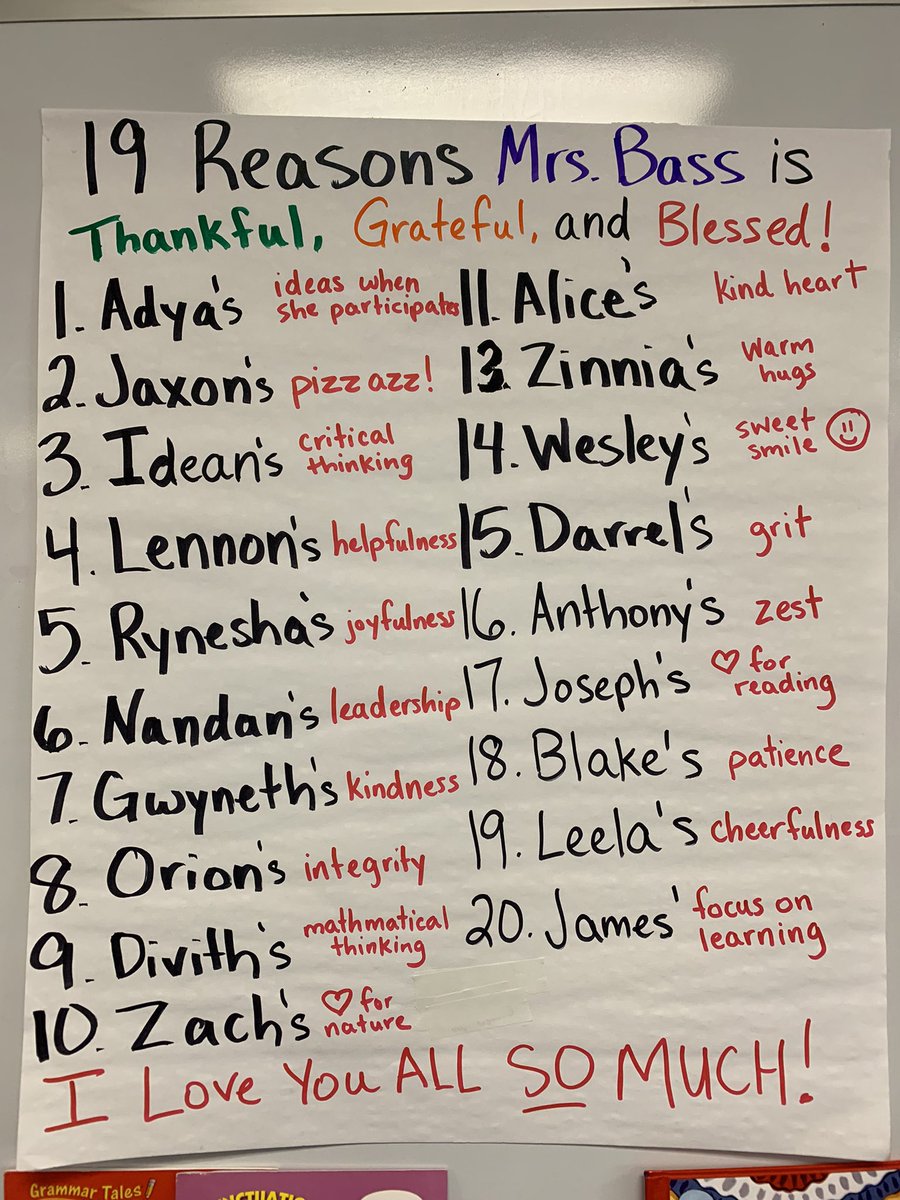 19 Reasons Mrs. Bass is
Thankful, Grateful, and Blessed!
1. Adya's ideas when
she participates
2. Jaxon's pizzazz!
3. Idean's critical
thinking
4. Lennon's helpfulness
5. Rynesha's joyfulness
6. Nandan's leadership
7. Gwyneth's kindness
8. Orion's integrity
9. Divith's mathmatical
thinking
10. Zach's ♡ for
nature
11. Alice's kind heart
13. Zinnia's warm
hugs
14. Wesley's sweet
smile
15. Darrel's grit
16. Anthony's zest
17. Joseph's ♡ for
reading
18. Blake's patience
19. Leela's cheerfulness
20. James' focus on
learning
I Love You ALL SO MUCH!
Grammar Tales